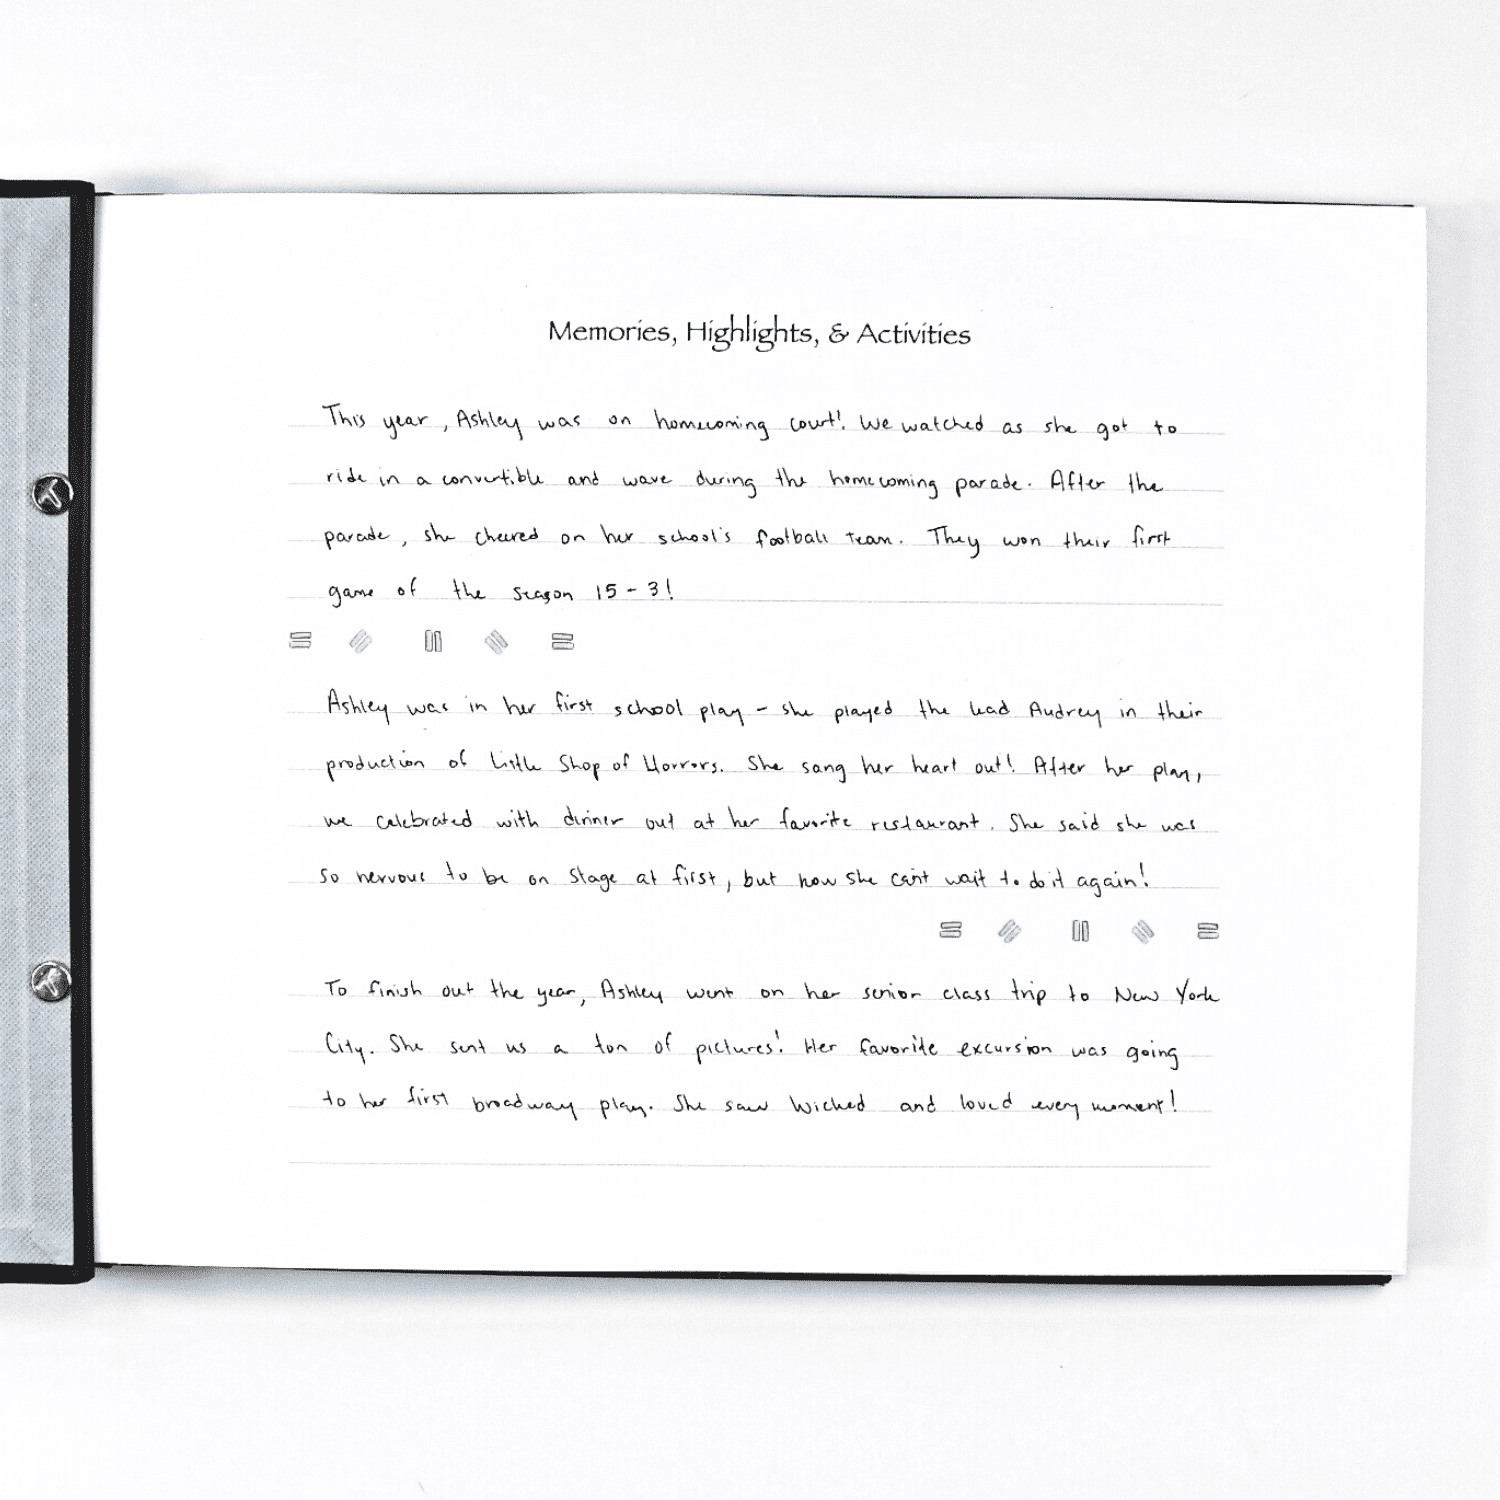 Memories, Highlights, & Activities
This year, Ashley was on homecoming court! We watched as she got to
ride in a convertible and wave during the homecoming parade. After the
parade, she cheered on her school's football team. They won their first
game of the season 15-3!
Ashley was in her first school play - she played the lead Audrey in their
production of Little Shop of Horrors. She sang her heart out! After her play,
we celebrated with dinner out at her favorite restaurant. She said she was
so nervous to be on stage at first, but now she can't wait to do it again!
To finish out the year, Ashley went on her senior class trip to New York
City. She sent us a ton of pictures! Her favorite excursion was going
to her first broadway play. She saw Wicked and loved every moment!